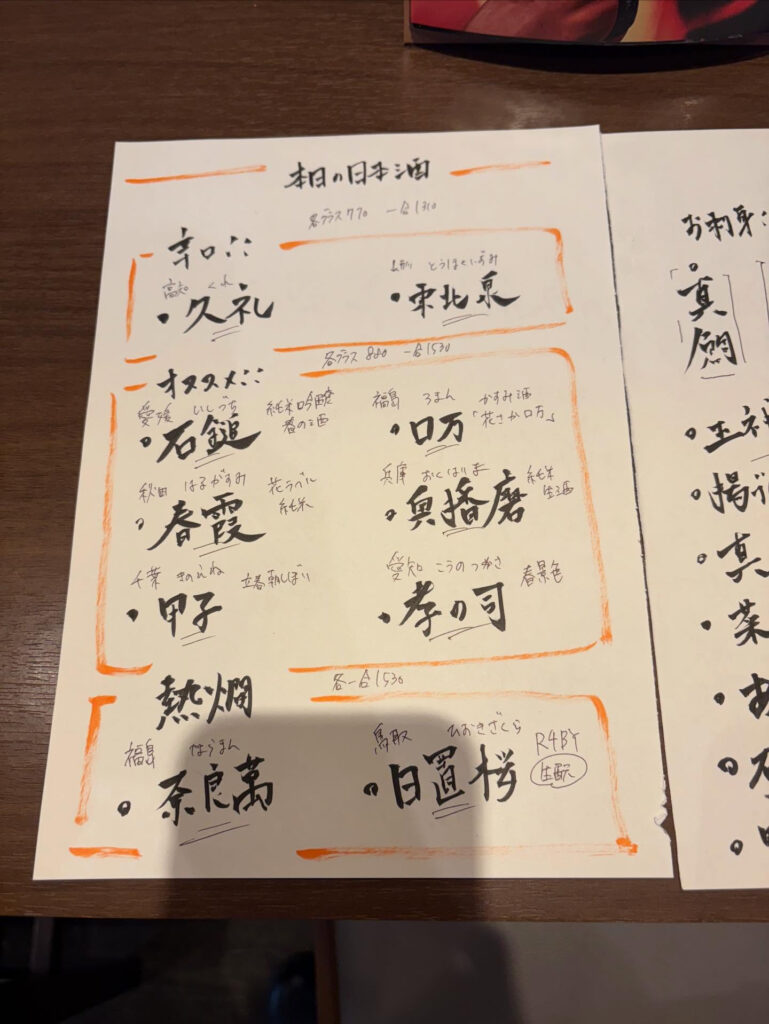 本日の日本酒
各グラス770 一合1310
辛口::
高知 くれ
・久礼
山形 とうほくいずみ
・東北泉
各グラス880 一合1530
オススメ::
愛媛 いしづち 純米吟醸 春の酒
・石鎚
福島 ろまん かすみ酒 「花さか口万」
・口万
秋田 はるがすみ 花ラベル 純米
・春霞
兵庫 おくはりま 純米 生酒
・奥播磨
千葉 きのえね 立春朝しぼり
・甲子
愛知 こうのつかさ 春景色
・孝の司
各一合1530
熱燗
福島 ならまん
・奈良萬
鳥取 ひおきざくら R4BY 生酛
・日置桜
お刺身:
真鯛
・揚げ
・真
・菜